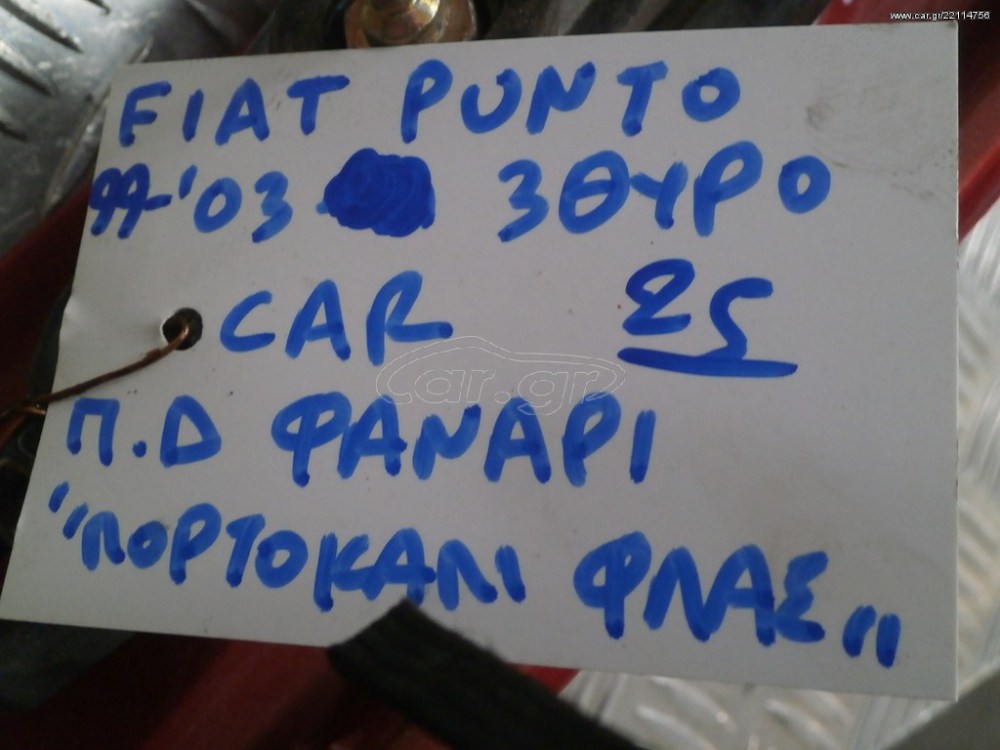 www.car.gr/22114756
FIAT PUNTO
99-'03 3ΘΥΡΟ
CAR 25
car.gr
Π.Δ ΦΑΝΑΡΙ
"ΠΟΡΤΟΚΑΛΙ ΦΛΑΣ"